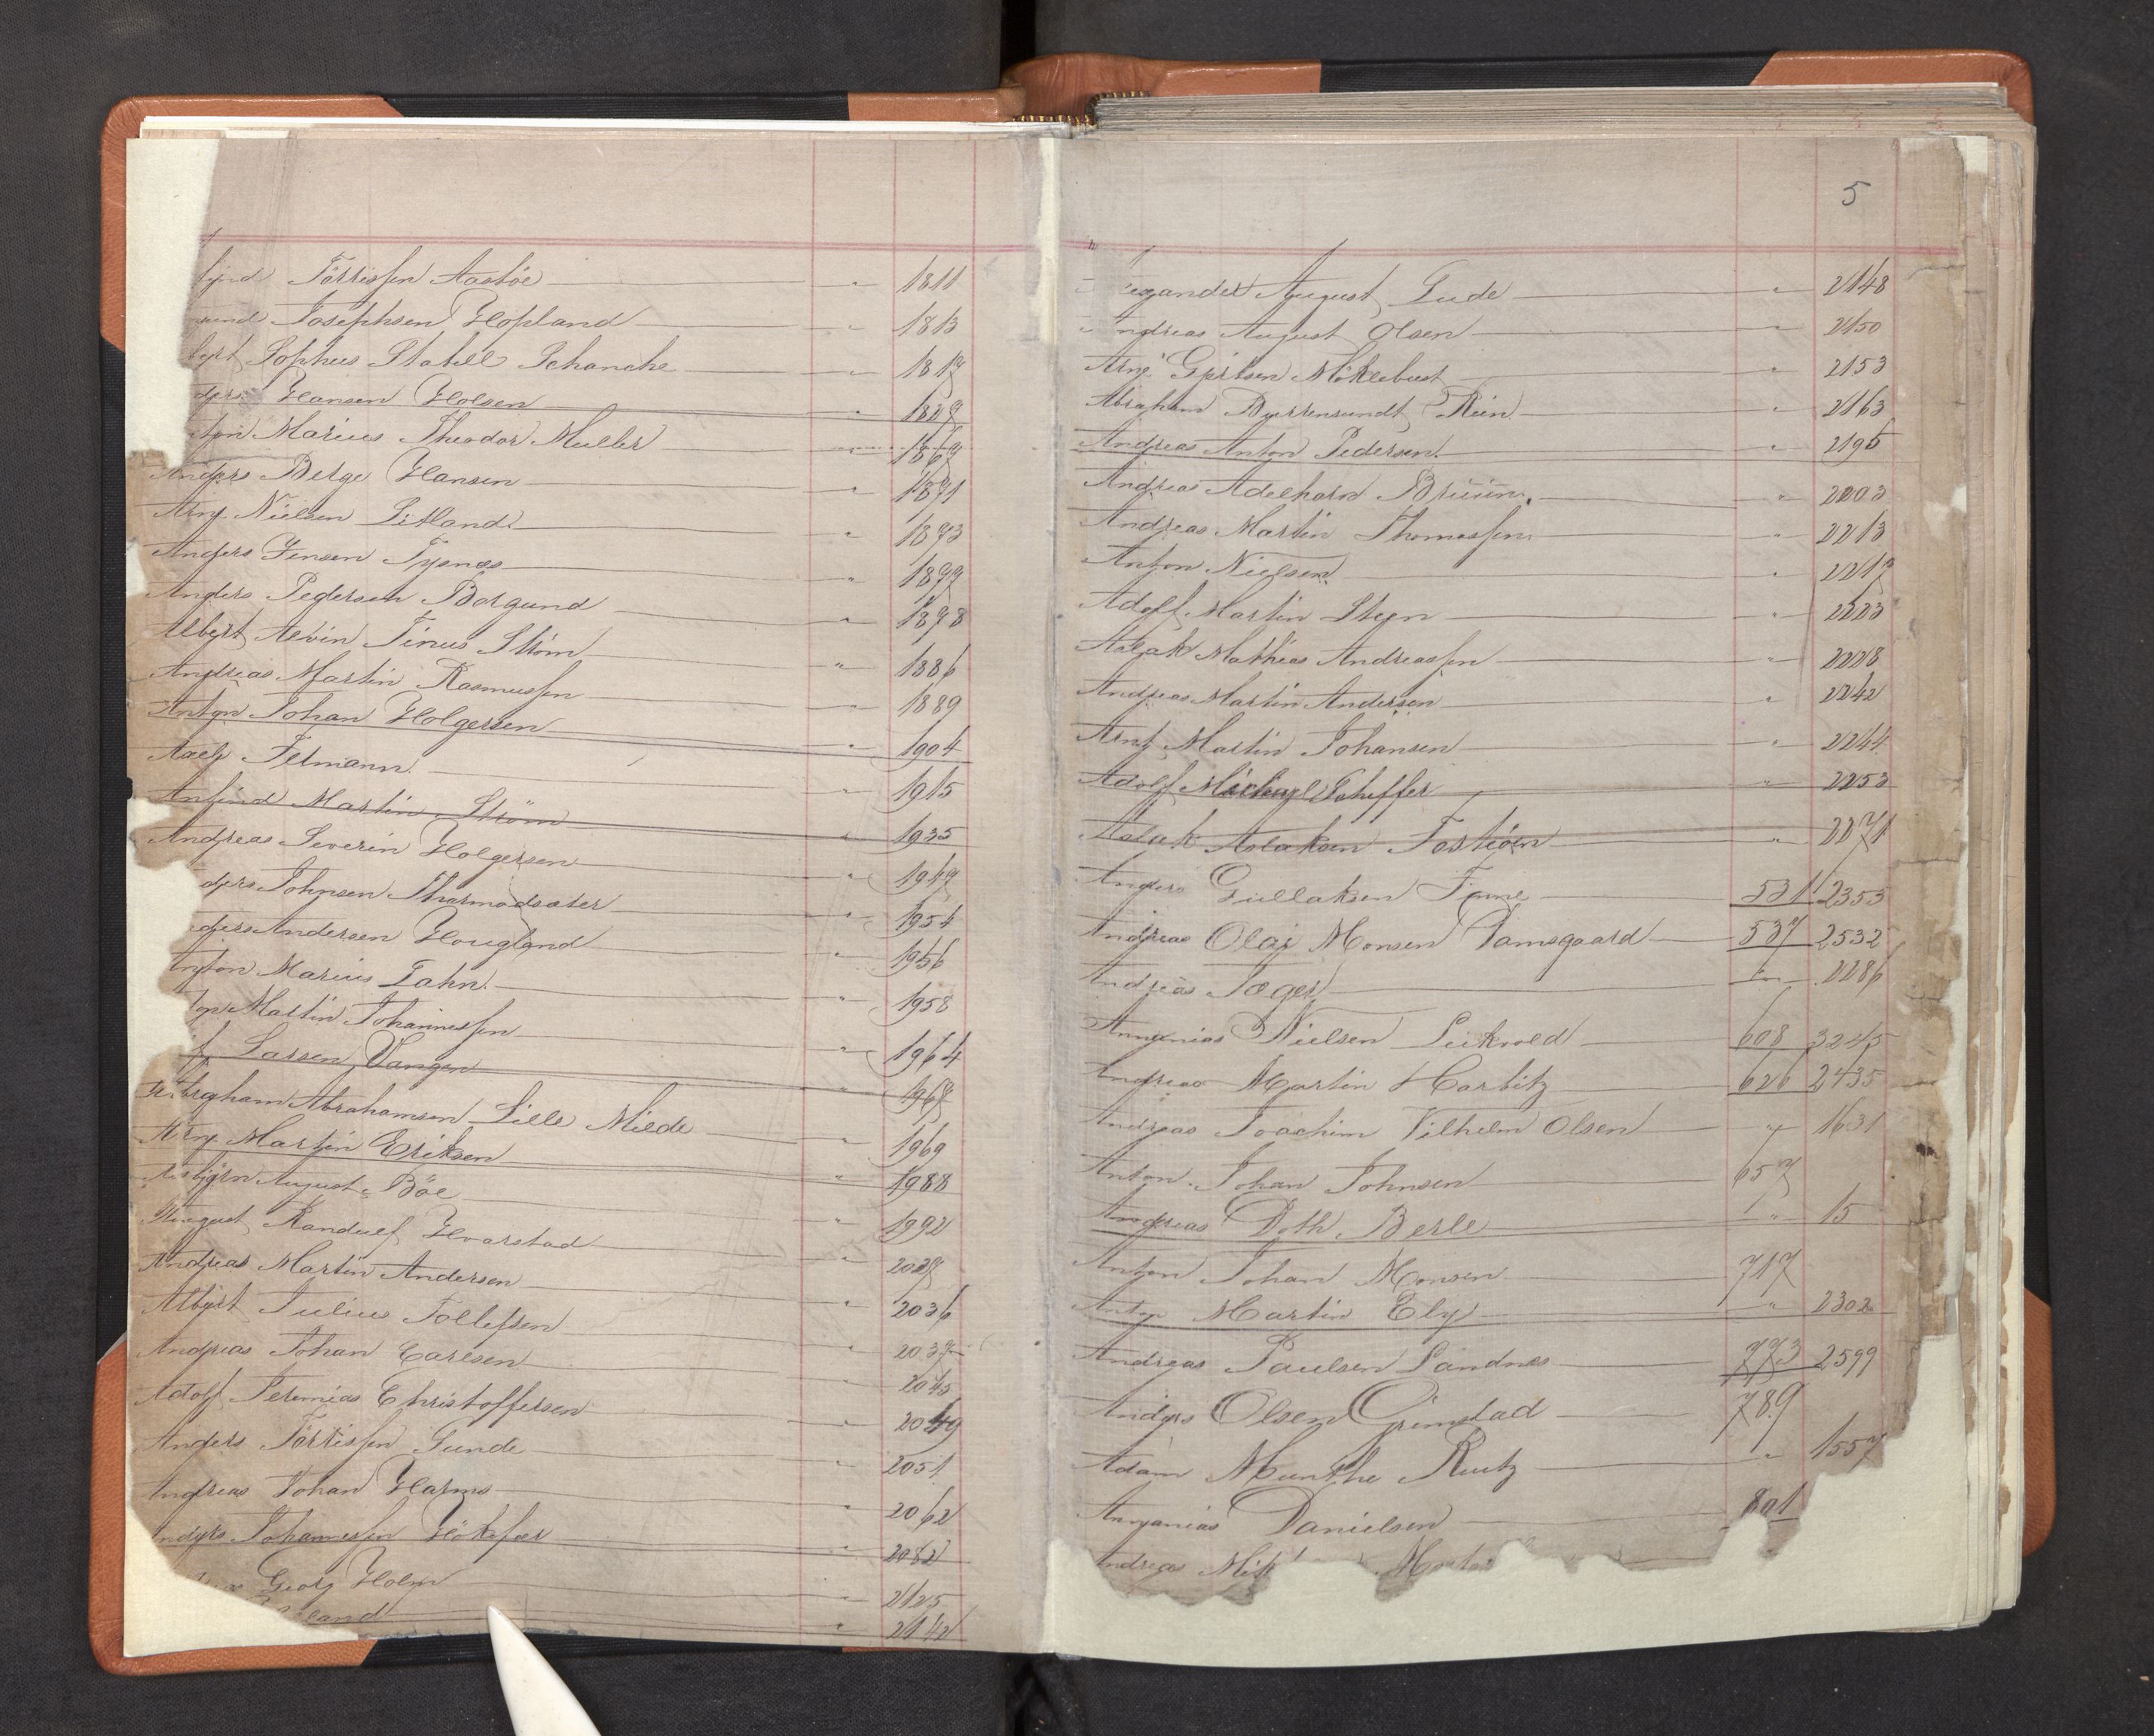 Tørrissen Aasbøe " 1811
Josephsen Hopland " 1813
Sophus Stabell Schanche " 1817
Hansen Holsen " 1827
Marius Theodor Muller " 1867
Anders Berge Hansen " 1871
Arne Nielsen Sætland " 1873
Anders Jensen Tysnes " 1877
Anders Pedersen Borgund " 1878
Albert Alvin Tinus Strøm " 1886
Andreas Martin Rasmussen " 1889
Anton Johan Holgersen " 1904
Felmann " 1915
Anfind Martin Strøm " 1935
Andreas Severin Holgersen " 1947
Johnsen Thormodsæter " 1954
Andersen Hougland " 1956
Anton Marius Jahn " 1958
Martin Johannessen " 1964
Larsen Vangen " 1967
Abraham Abrahamsen Lille Milde " 1969
Arne Martin Eriksen " 1988
Asbjørn August Bøe " 1992
August Randulf Hvarstad " 2027
Andreas Martin Andersen " 2036
Albert Julius Tollefsen " 2037
Andreas Johan Carlsen " 2045
Adolf Jeremias Christoffersen " 2049
Anders Tørrissen Gunde " 2051
Andreas Johan Harms " 2062
Anders Johannessen " 2082
Georg Holm " 2125
land " 2142
5
August Gude " 2148
Andreas August Olsen " 2150
Arne Gjertsen Møklebust " 2153
Abraham Rein " 2163
Andreas Anton Pedersen " 2195
Andreas Adelhard Brüün " 2203
Andreas Martin Thomassen " 2213
Anton Nielsen " 2217
Adolf Martin Steen " 2223
Aslak Mathias Andreassen " 2228
Andreas Martin Andersen " 2242
Arnt Martin Johansen " 2244
Adolf Michael Scheffer " 2253
Aslak Aslaksen " 2271
Anders Gullaksen Fanne 531 2353
Andreas Olai Monsen Damsgaard 537 2532
Andreas Jæger " 2286
Annanias Nielsen Leikvold 608 3245
Andreas Martin Harbitz 626 2435
Andreas Joachim Vilhelm Olsen " 1631
Anton Johan Johnsen 657
Andreas Doth Berle " 15
Anton Johan Monsen 717
Anton Martin Ely " 2302
Andreas Paulsen Sandnes 773 2599
Anders Olsen Grimstad 789
Adam Munthe " 1557
Annanias Danielsen 801
Andreas